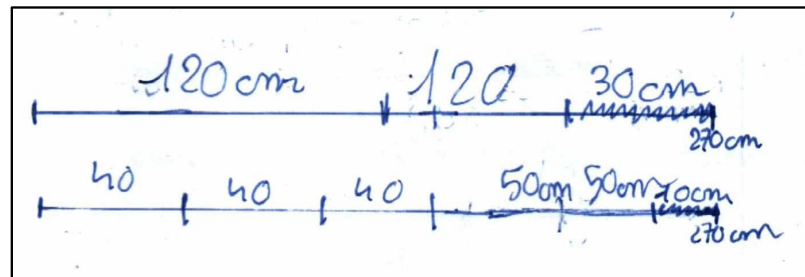 120cm 120 30cm
270cm
40 40 40 50cm 50cm 10cm
270cm